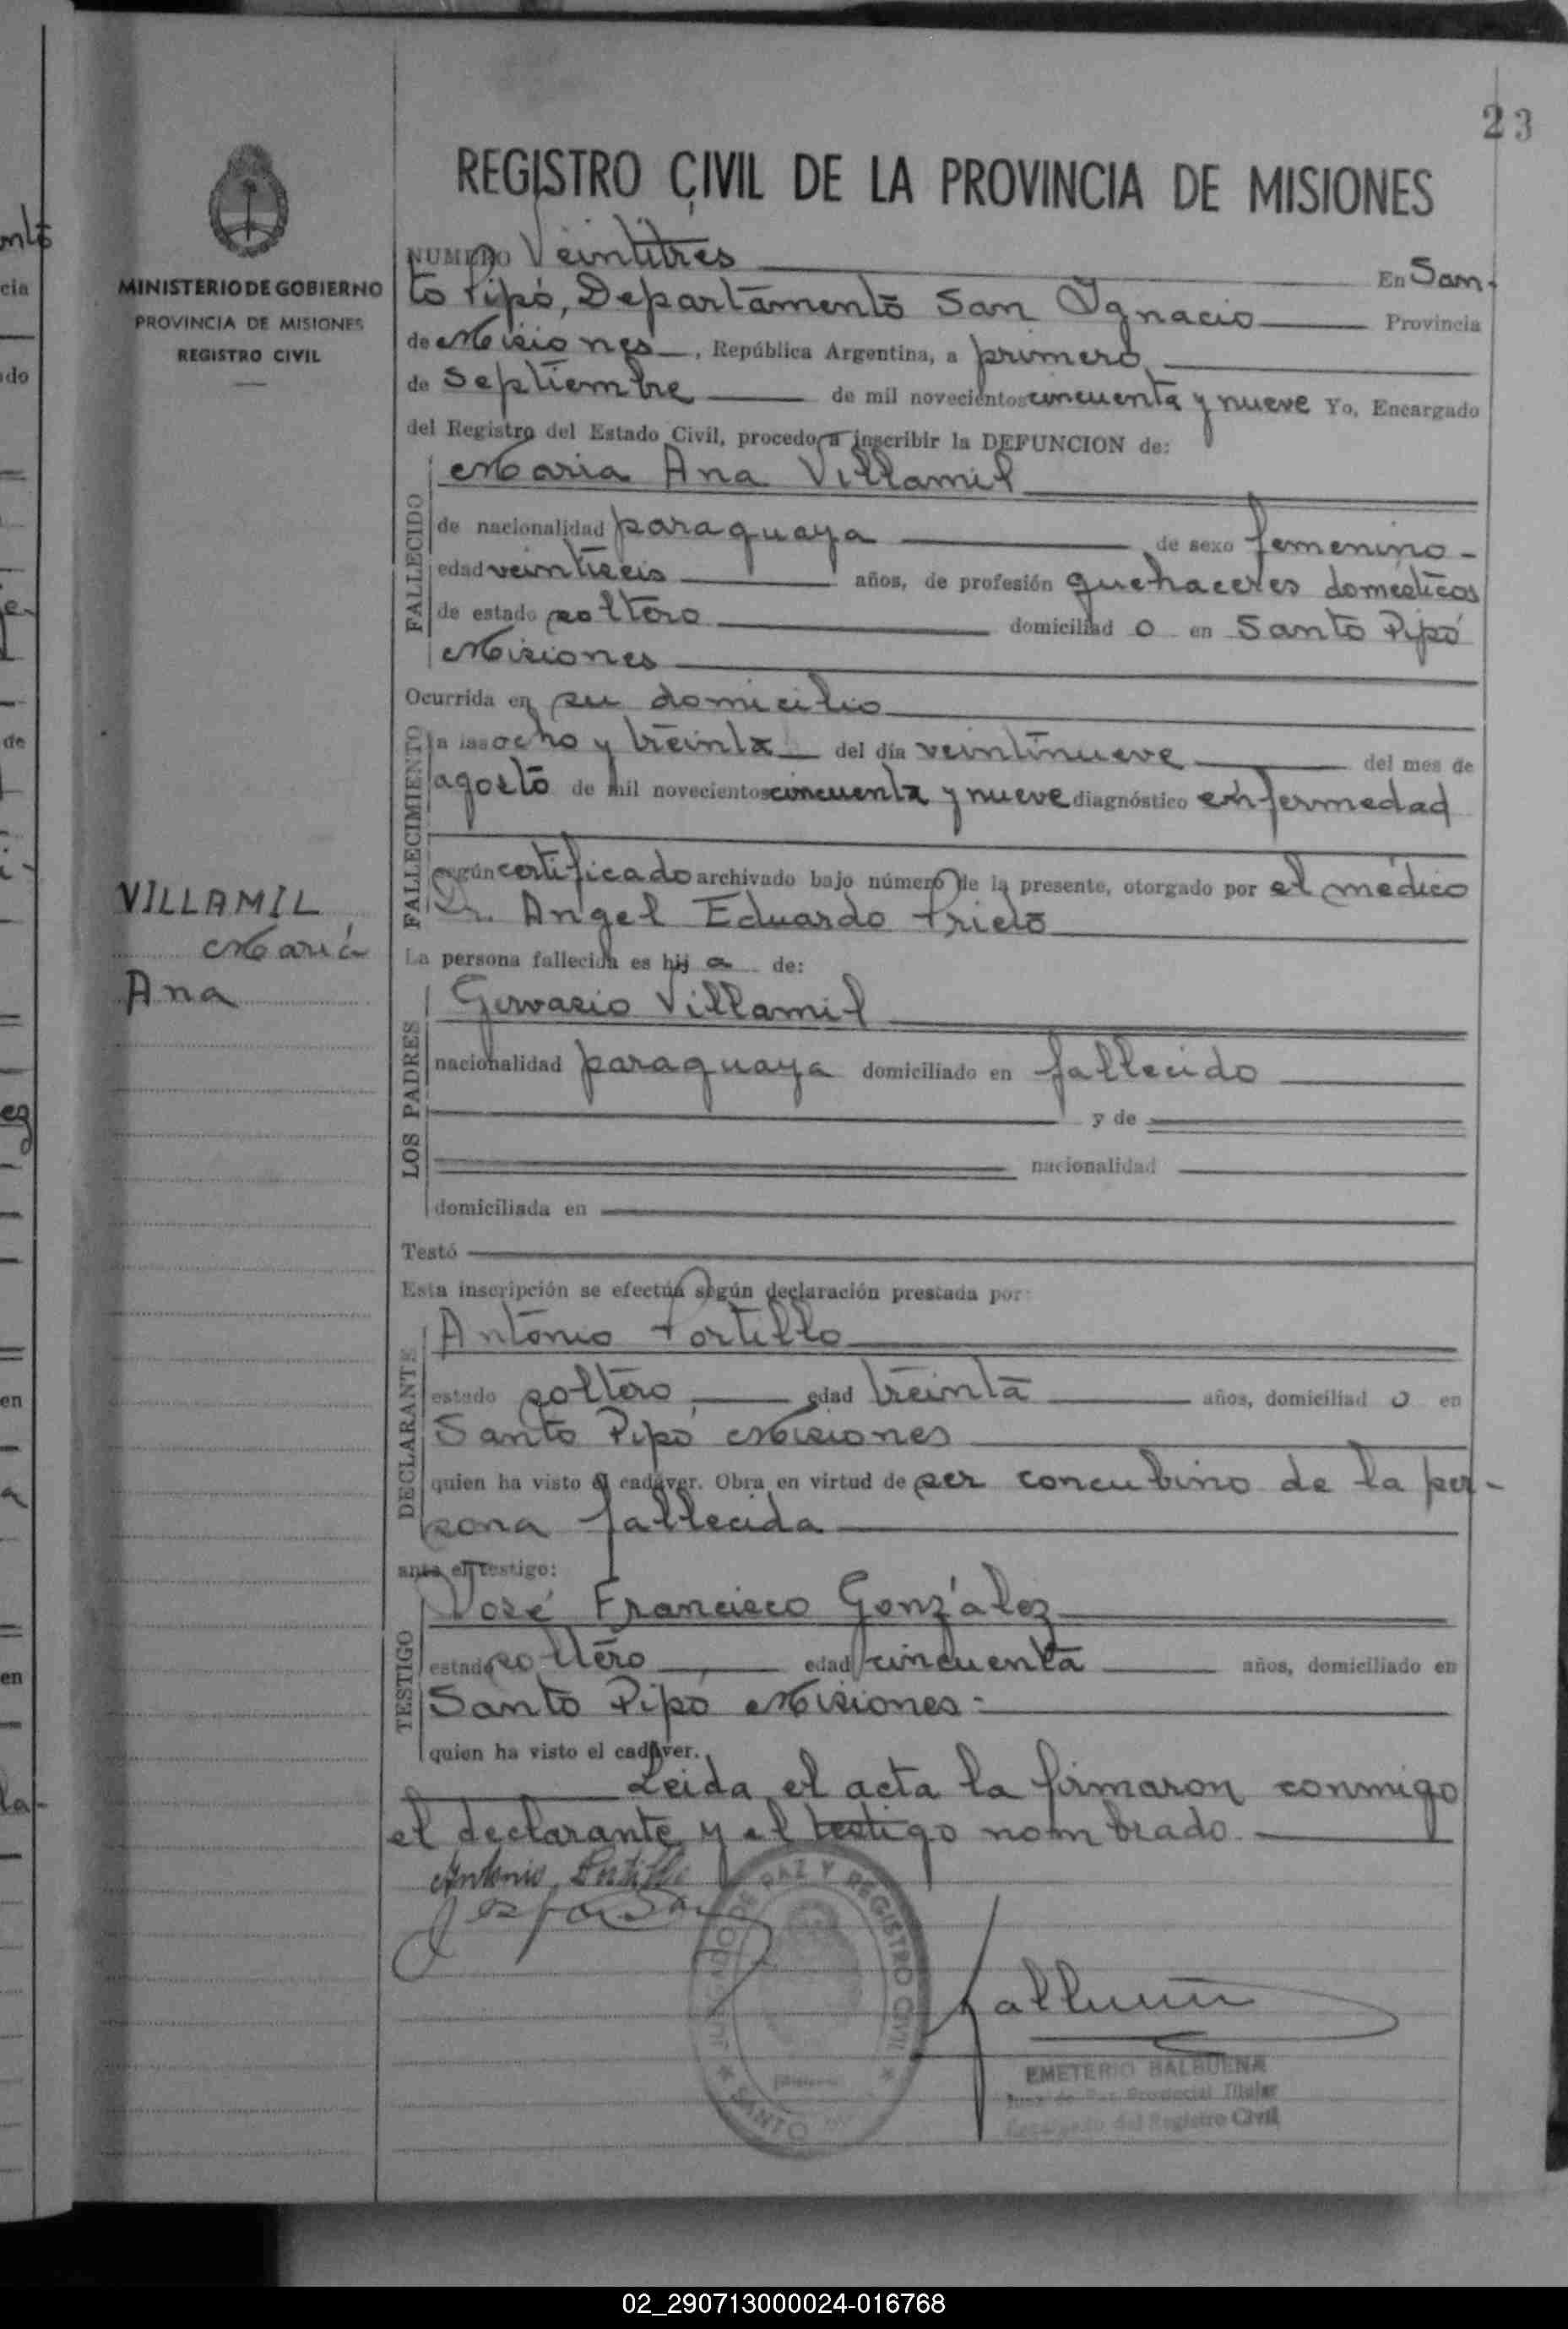 23
REGISTRO CIVIL DE LA PROVINCIA DE MISIONES
MINISTERIO DE GOBIERNO
PROVINCIA DE MISIONES
REGISTRO CIVIL
NUMERO Veintitres En San-
to Pipó, Departamento San Ignacio Provincia
de Misiones, República Argentina, a primero
de Septiembre de mil novecientos cincuenta y nueve Yo, Encargado
del Registro del Estado Civil, procedo a inscribir la DEFUNCION de:
FALLECIDO
Maria Ana Villamil
de nacionalidad paraguaya de sexo femenino-
edad veintiseis años, de profesión quehaceres domesticos
de estado soltero domiciliad o en Santo Pipó
Misiones
Ocurrida en su domicilio
FALLECIMIENTO
a las ocho y treinta del día veintinueve del mes de
agosto de mil novecientos cincuenta y nueve diagnóstico enfermedad
según certificado archivado bajo número de la presente, otorgado por el médico
Dr. Angel Eduardo Prieto
VILLAMIL
Maria
Ana
La persona fallecida es hij a de:
LOS PADRES
Gervasio Villamil
nacionalidad paraguaya domiciliado en fallecido
y de
nacionalidad
domiciliada en
Testó
Esta inscripción se efectúa según declaración prestada por:
DECLARANTE
Antonio Portillo
estado soltero edad treinta años, domiciliad o en
Santo Pipó Misiones
quien ha visto el cadáver. Obra en virtud de ser concubino de la per-
sona fallecida
ante el testigo:
TESTIGO
José Francisco González
estado soltero edad cincuenta años, domiciliado en
Santo Pipó Misiones-
quien ha visto el cadáver.
Leida el acta la firmaron conmigo
el declarante y el testigo nombrado.
Antonio Portillo
DE PAZ Y REGISTRO CIVIL
SANTO
EMETERIO BALBUENA
Juez de Paz Provincial Titular
Encargado del Registro Civil
02_290713000024-016768